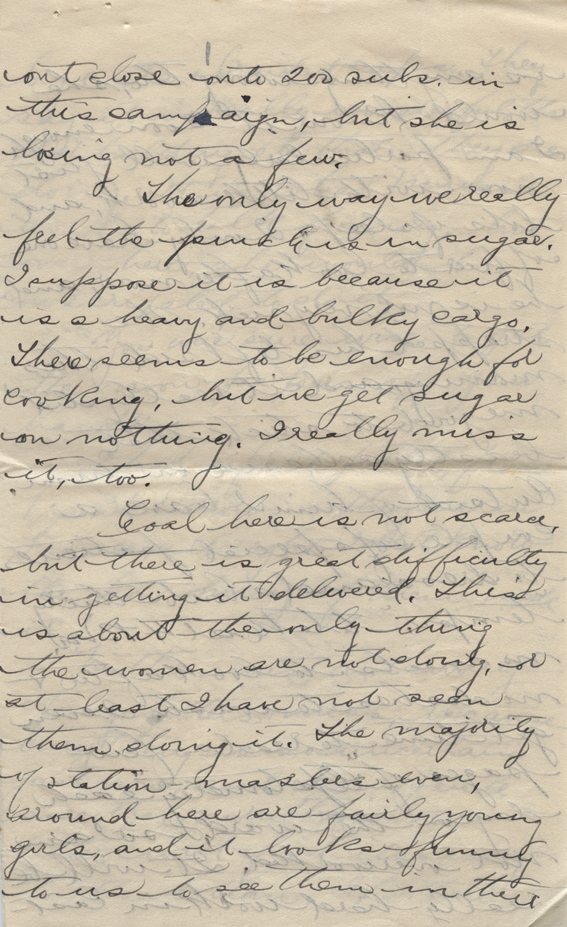 out close onto 200 subs. in
this campaign, but she is
losing not a few.
The only way we really
feel the pinch is in sugar.
I suppose it is because it
is a heavy and bulky cargo.
There seems to be enough for
cooking, but we get sugar
on nothing. I really miss
it, too.
Coal here is not scarce,
but there is great difficulty
in getting it delivered. This
is about the only thing
the women are not doing, or
at least I have not seen
them doing it. The majority
of station masters even,
around here are fairly young
girls, and it looks funny
to us to see them in their